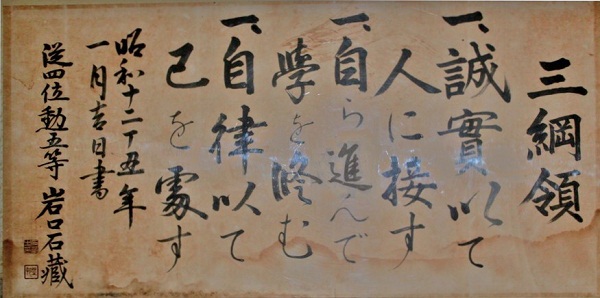 三綱領
一、誠實以て
人に接す
一、自ら進んで
學を修む
一、自律以て
己を處す
昭和十二丁丑年
一月吉日書
従四位勲五等 岩口石藏